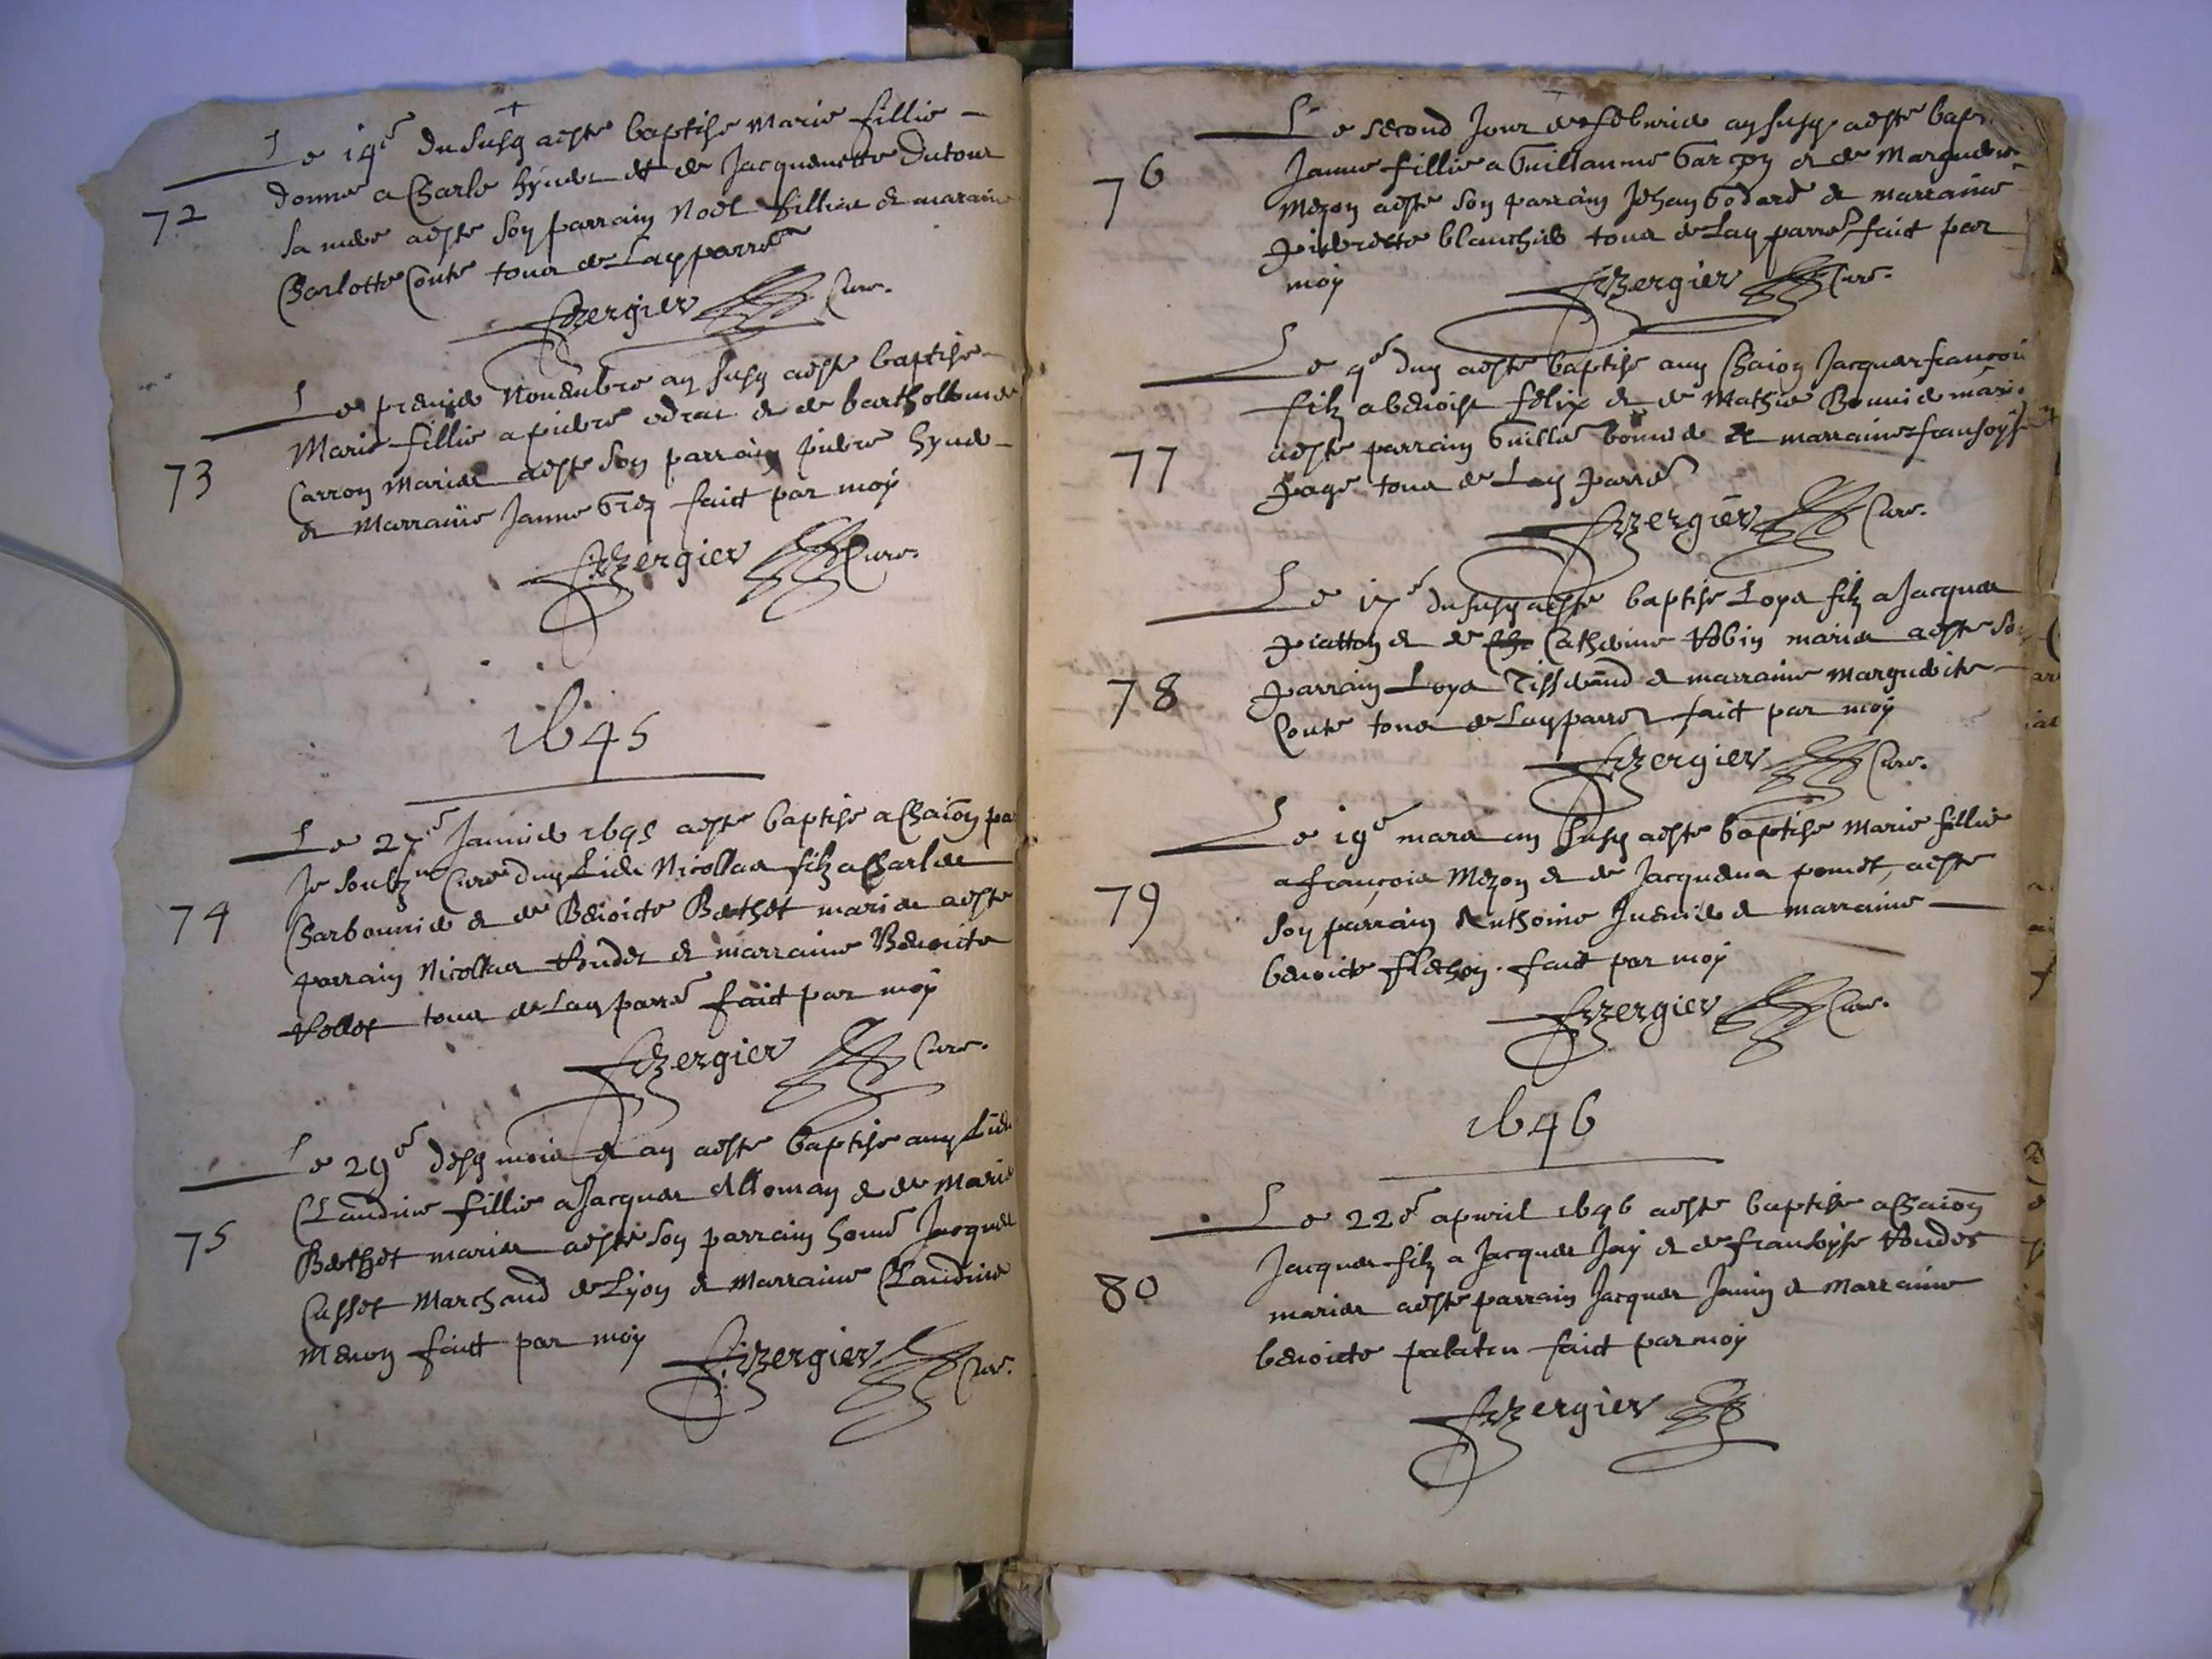 Le 19e du susd a este baptise Marie fillie
72
donne a Charle et de Jacquemette Dutour
sa mere a este son parrain Noel fillion et marraine
Charlotte Conte tous de Lad parre
Bergier Cure.
Le premier Novembre an susd a este baptise
Marie fillie a pierre et de bartholomie
73
Carron Maries a este son parrain pierre
et Marraine Janne faict par moy
Bergier Cure.
1645
Le 27e Janvier 1645 a este baptise a Chaion pa
Je soubzne Cure dud Lieu Nicollas filz a Charles
74
Charbonnier et de Benoicte Berthet maries a este
parrain Nicollas et marraine Benoicte
tous de Lad parre faict par moy
Bergier Cure.
Le 29e desd mois et an a este baptise aud Lieu
Claudine fillie a Jacques Alloman et de Marie
75
Berthet maries a este son parrain honne Jacques
Cusset Marchand de Lyon et Marraine Claudine
Menon faict par moy
Bergier Cure.
Le second Jour de febvrier an susd a este bap
76
Janne fillie a Guillaume Garcon et de Marguerite
Mezon a este son parrain Jehan Godard et marraine
pierrette blanchier tous de Lad parre, faict par
moy
Bergier Cure.
Le 9e dud a este baptise aud Chaion Jacques francois
filz a benoist felix et de Mathie Bonnier
77
a este parrain Guille bonnier et marraine fransoyse
page tous de Lad parre
Bergier Cure.
Le 17e du susd a este baptise Loys filz a Jacques
piatton et de Catherine Robin maries a este son
78
parrain Loys Tisserand et marraine Marguerite
Conte tous de Lad parre faict par moy
Bergier Cure.
Le 19e mars an susd a este baptise Marie fillie
a francois Mezon et de Jacquema ponet, a este
79
son parrain Anthoine et marraine
benoicte faict par moy
Bergier Cure.
1646
Le 22e apvril 1646 a este baptise a Chaion
Jacques filz a Jacques Jay et de fransoyse
80
maries a este parrain Jacques Janin et Marraine
benoicte palatin faict par moy
Bergier